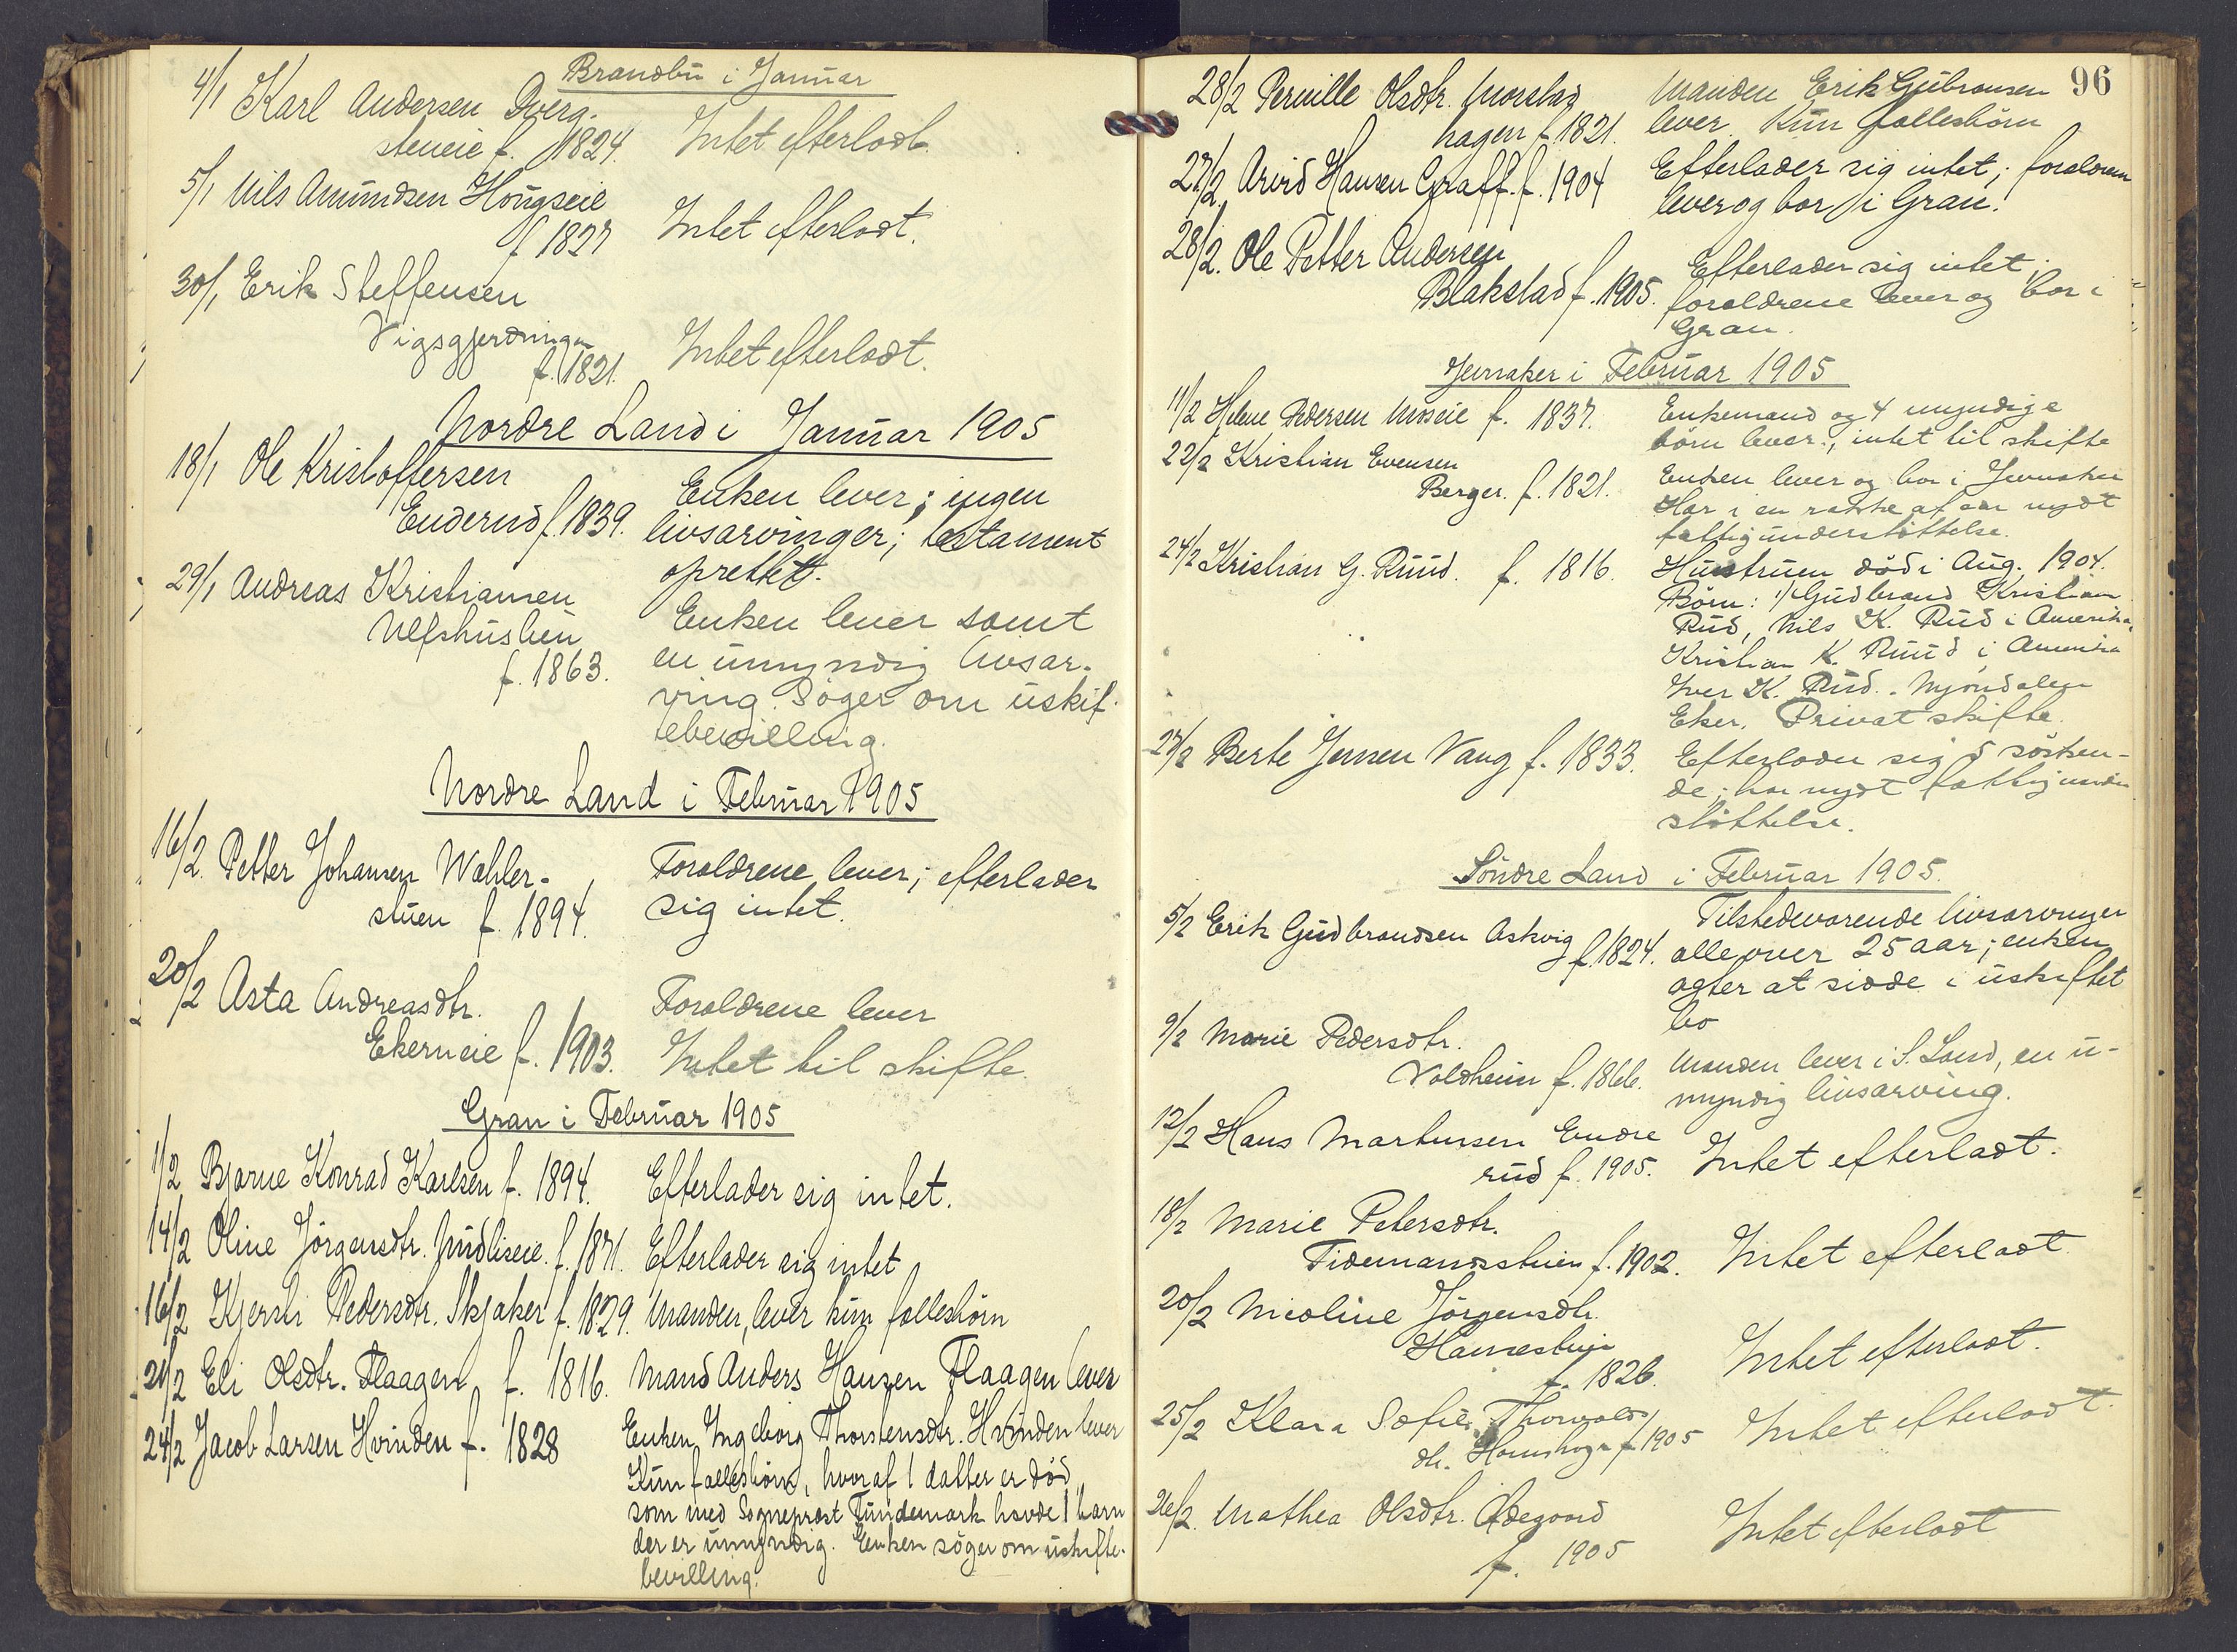 Brandbu i Januar
4/1 Karl Andersen Dverg-
steneie f. 1824. Intet efterladt.
5/1 Nils Amundsen Hougseie
f 1827 Intet efterladt.
30/1 Erik Steffensen
Vigsgjerdningen
f. 1821. Intet efterladt.
Nordre Land i Januar 1905
18/1 Ole Kristoffersen
Enderud f. 1839. Enken lever; ingen
livsarvinger; testament
oprettet.
29/1 Andreas Kristiansen
Ulfshusben
f. 1863. Enken lever samt
en umyndig livsar-
ving. Søger om uskif-
tebevilling.
Nordre Land i Februar 1905
16/2. Petter Johansen Wøhler-
stuen f. 1894. Forældrene lever; efterlader
sig intet.
20/2 Asta Andreasdtr.
Ekerneie f. 1903. Forældrene lever
Intet til skifte.
Gran i Februar 1905
1/2 Bjarne Konrad Karlsen f. 1894. Efterlader sig intet.
14/2 Oline Jörgensdtr. Midlieie f. 1871. Efterlader sig intet
16/2 Kjersti Pedersdtr. Skjaker f. 1829. Manden lever kun fællesbörn
21/2 Eli Olsdtr. Flaagen f. 1816. Mand Anders Hansen Flaagen lever
24/2 Jacob Larsen Hvinden f. 1828 Enken Ingeborg Thorstensdtr. Hvinden lever
Kun fællesbörn, hvoraf 1 datter er död,
som med Sogneprost Tundemark havde 1 barn
der er umyndig. Enken söger om uskifte-
bevilling.
96
28/2 Pernille Olsdtr. Morstad
hagen f. 1821. Manden Erik Gubransen
lever. Kun fællesbörn
27/2. Arvid Hansen Graff. f. 1904 Efterlader sig intet; forældrene
lever og bor i Gran.
28/2. Ole Petter Andersen
Blakstad f. 1905. Efterlader sig intet;
forældrene lever og bor i
Gran.
Jevnaker i Februar 1905
11/2 Helene Pedersen Moseie f. 1837. Enkemand og 4 myndige
börn lever; intet til skifte
22/2 Kristian Evensen
Berger. f. 1821. Enken lever og bor i Jevnaker
Har i en række af aar nydt
fattigunderstöttelse.
24/2 Kristian G. Ruud. f. 1816. Hustruen död i Aug. 1904.
Börn: 1/ Gudbrand Kristian
Rud, Nils K. Rud i Amerika,
Kristian K. Ruud i Amerika
Iver K. Rud. Mjøndalen
Eker. Privat skifte.
27/2 Berte Jensen Vang f. 1833. Efterlader sig 5 sösken-
de; har nydt fattigunder
stöttelse.
Söndre Land i Februar 1905.
5/2 Erik Gudbrandsen Askvig f. 1824. Tilstedeværende livsarvinger
alle over 25 aar; enken
agter at sidde i uskiftet
bo
9/2 Marie Pedersdtr.
Voldheim f. 1866. Manden lever i S. Land, en u-
myndig livsarving.
12/2 Hans Martinsen Endre
rud f. 1905. Intet efterladt.
18/2 Marie Petersdtr.
Tidemandsstuen f. 1902. Intet efterladt
20/2 Nicoline Jörgensdtr.
f. 1826. Intet efterladt.
25/2 Klara Sofie Thorvalds
dtr. f 1905 Intet efterladt.
26/2. Mathea Olsdtr. Ödegaard
f. 1905 Intet efterladt